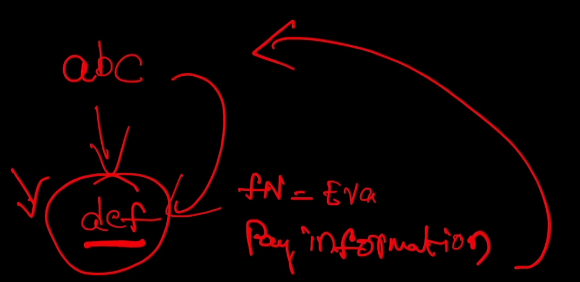 abc
def
fN = Eva
Pay information